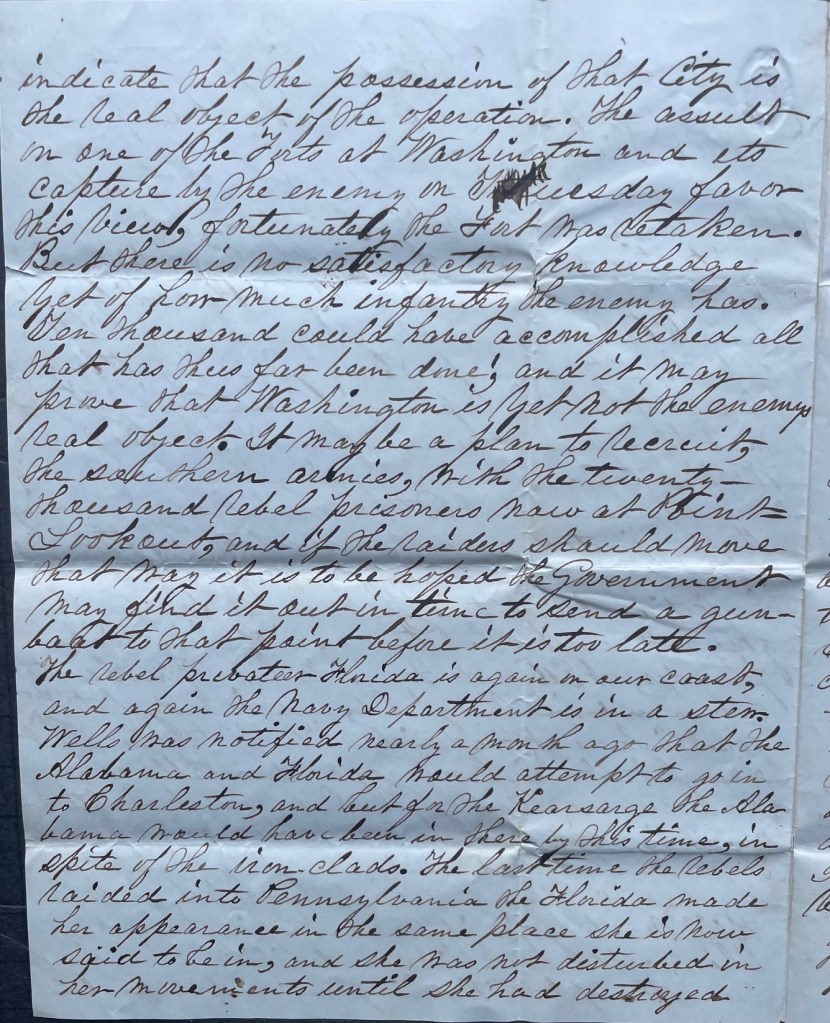 indicate that the possession of that City is
the real object of the operation. The assult
on one of the Forts at Washington and its
capture by the enemy on Tuesday favor
this view, fortunately the Fort was retaken.
But there is no satisfactory knowledge
yet of how much infantry the enemy has.
Ten thousand could have accomplished all
that has thus far been done; and it may
prove that Washington is yet not the enemys
real object. It may be a plan to recruit,
the southern armies, with the twenty-
thousand rebel prisoners now at Point-
Lookout, and if the raiders should move
that way it is to be hoped the Government
may find it out in time to send a gun-
boat to that point before it is too late.
The rebel privateer Florida is again on our coast,
and again the Navy Department is in a stew.
Wells was notified nearly a month ago that the
Alabama and Florida would attempt to go in
to Charleston, and but for the Kearsarge the Ala-
bama would have been in there by this time, in
spite of the iron-clads. The last time the rebels
raided into Pennsylvania the Florida made
her appearance in the same place she is now
said to be in, and she was not disturbed in
her movements until she had destroyed